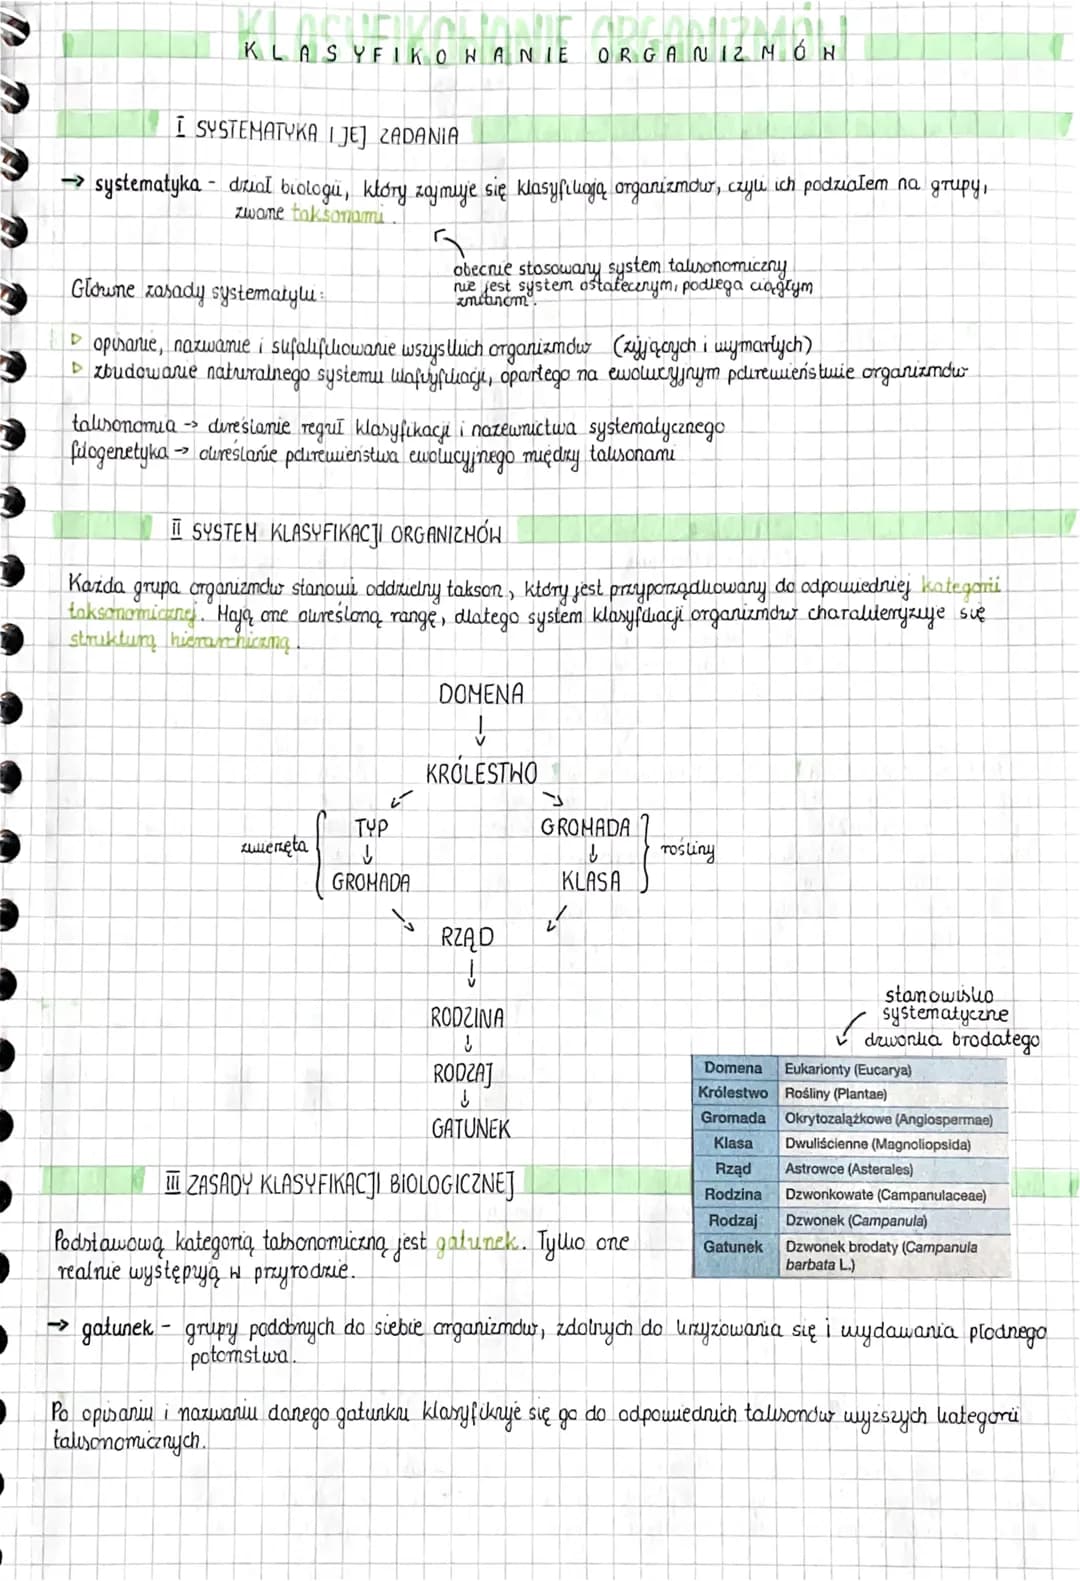 KLASYFIKOWANIE ORGANIZMÓW
I SYSTEMATYKA I JEJ ZADANIA
→ systematyka - dział biologii, który zajmuje się klasyfikają organizmów, czyli ich podziałem na grupy,
zwane taksonami.
obecnie stosowany system taksonomiczny
nie jest system ostatecznym, podlega ciągłym
zmianom.
Główne zasady systematyki:
▷ opisanie, nazwanie i sufalifikowanie wszystkich organizmów (żyjących i wymarłych)
▷ zbudowanie naturalnego systemu klasyfikacji, opartego na ewolucyjnym pokrewieństwie organizmów
taksonomia → określanie reguł klasyfikacji i nazewnictwa systematycznego
filogenetyka → określańie pokrewieństwa ewolucyjnego między taksonami
II SYSTEM KLASYFIKACJI ORGANIZMÓW
Każda grupa organizmów stanowi oddzielny takson, który jest przyporządkowany do odpowiedniej kategorii
taksonomicznej. Mają one określoną rangę, dlatego system klasyfikacji organizmów charakteryzuje się
strukturą hierarchiczną.
DOMENA
↓
KRÓLESTWO
TYP GROMADA
zwierzęta ↓ ↓ rośliny
GROMADA KLASA
RZĄD
↓
RODZINA
↓
RODZAJ
↓
GATUNEK
stanowisko
systematyczne
dzwonka brodatego
Domena Eukarionty (Eucarya)
Królestwo Rośliny (Plantae)
Gromada Okrytozalążkowe (Angiospermae)
Klasa Dwuliścienne (Magnoliopsida)
Rząd Astrowce (Asterales)
Rodzina Dzwonkowate (Campanulaceae)
Rodzaj Dzwonek (Campanula)
Gatunek Dzwonek brodaty (Campanula
barbata L.)
III ZASADY KLASYFIKACJI BIOLOGICZNEJ
Podstawową kategorią taksonomiczną jest gatunek. Tylko one
realnie występują w przyrodzie.
→ gatunek - grupy podobnych do siebie organizmów, zdolnych do krzyżowania się i wydawania płodnego
potomstwa.
Po opisaniu i nazwaniu danego gatunku klasyfikuje się go do odpowiednich taksonów wyższych kategorii
taksonomicznych.